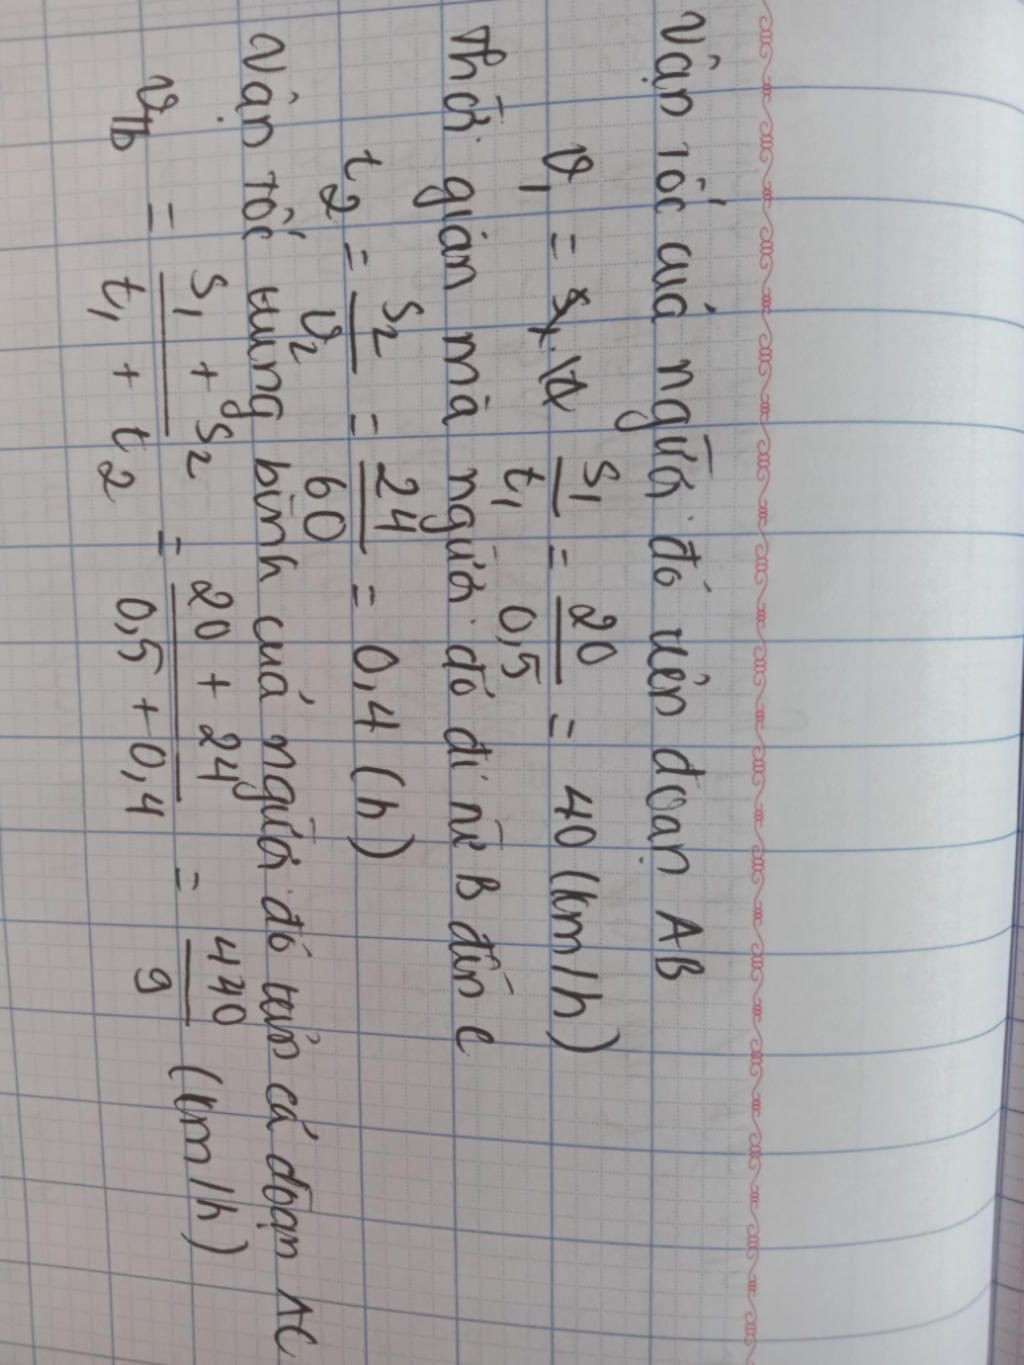 Vận tốc của người đó trên đoạn AB
v₁ = s₁/t₁ = 20/0,5 = 40 (km/h)
Thời gian mà người đó đi từ B đến C
t₂ = s₂/v₂ = 24/60 = 0,4 (h)
Vận tốc trung bình của người đó trên cả đoạn AC
vtb = (s₁ + s₂)/(t₁ + t₂) = (20 + 24)/(0,5 + 0,4) = 440/9 (km/h)